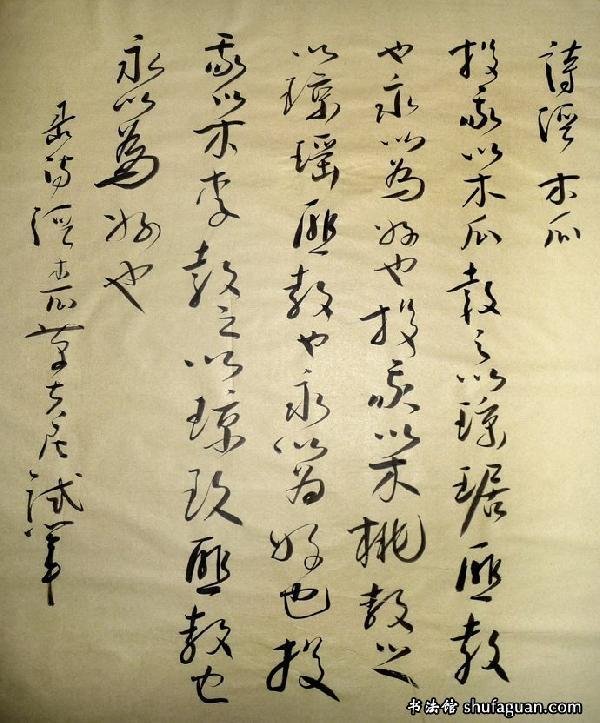 詩經木瓜
投我以木瓜報之以瓊琚匪報
也永以為好也投我以木桃報之
以瓊瑤匪報也永以為好也投
我以木李報之以瓊玖匪報也
永以為好也
录詩經木瓜草玄居試筆
书法馆 shufaguan.com